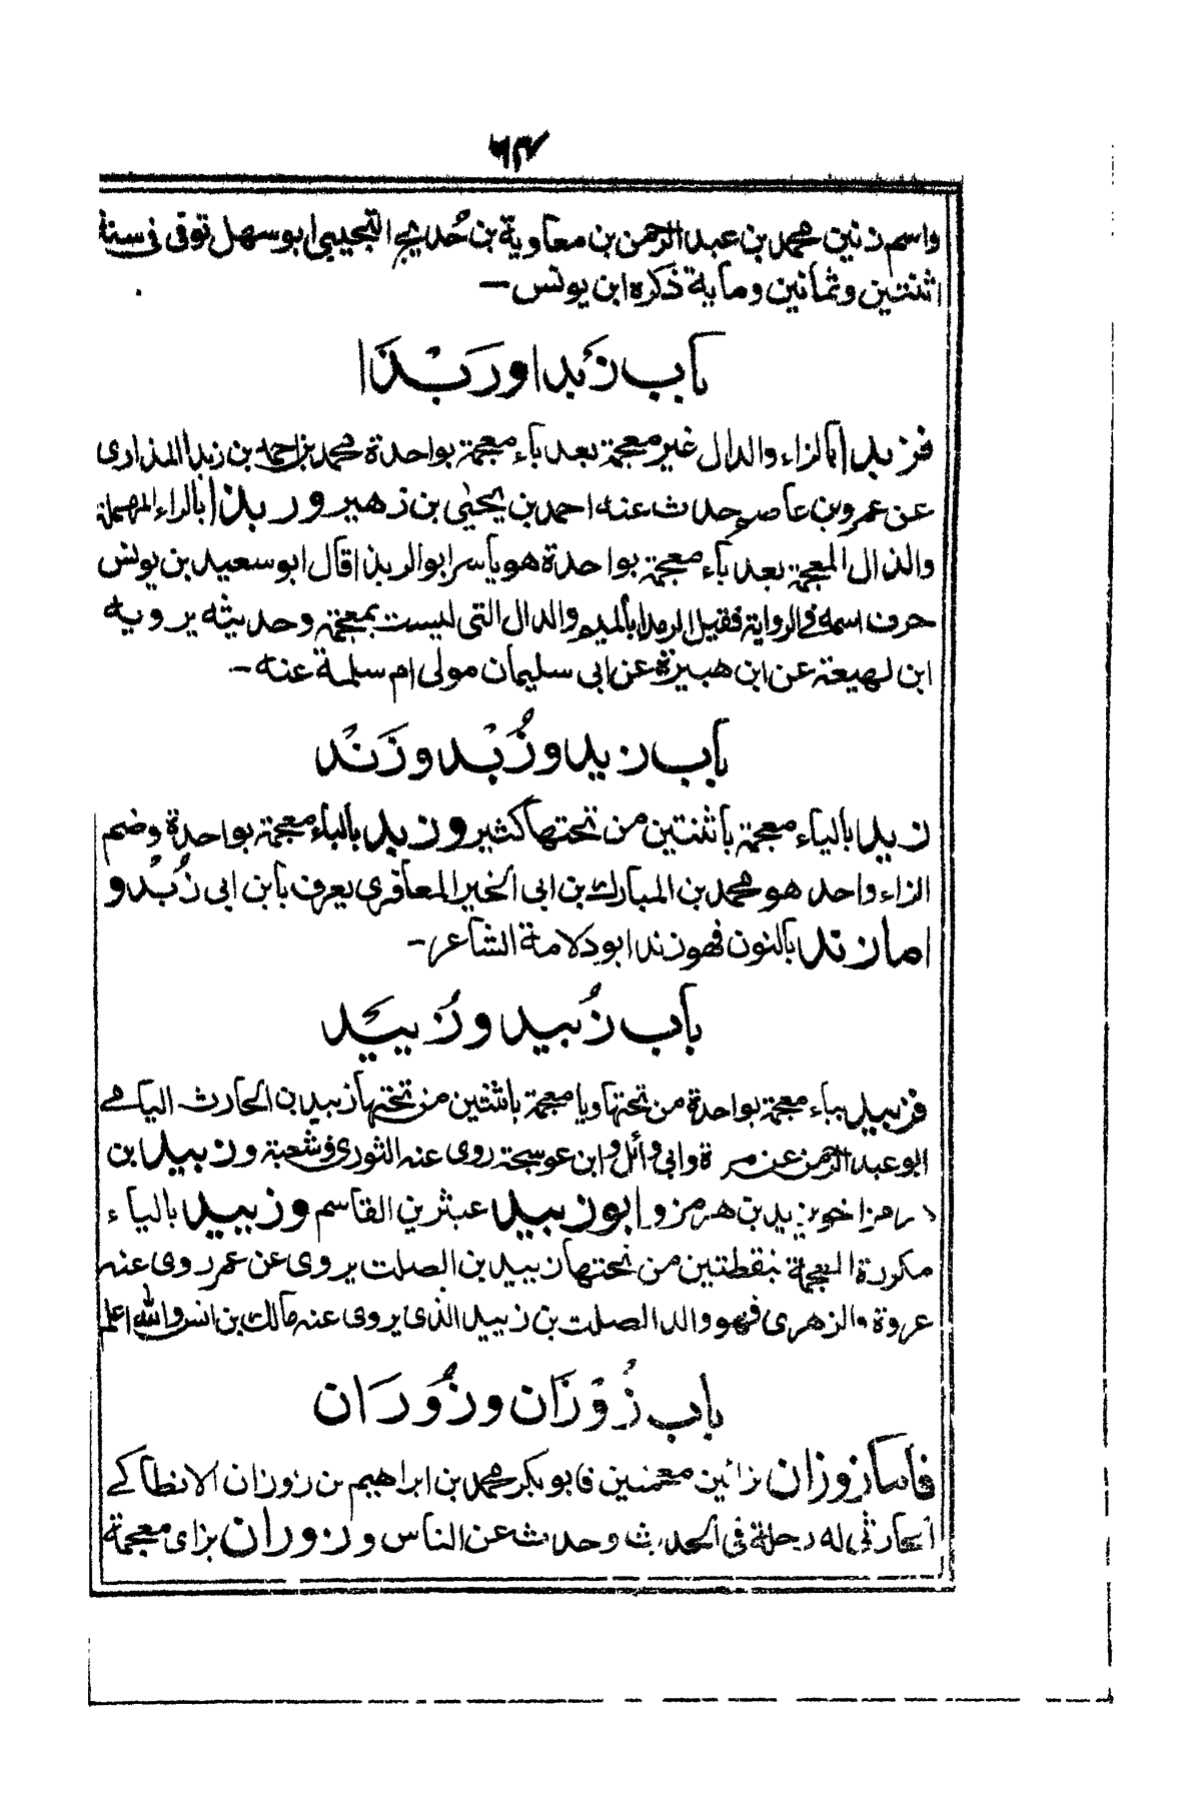 ٦٤
واسم زنين محمد بن عبد الرحمن بن معاوية بن حُديج التجيبي ابو سهل توفى فى سنة
اثنتين وثمانين وماية ذكره ابن يونس —
باب زَبدا ورَبْذَا
فزبدا بالزاء والدال غير معجمة بعد باء معجمة بواحدة محمد بن احمد بن زبدا المذارى
عن عمرو بن عاصم حدث عنه احمد بن يحيٰى بن زهير وربذا بالراء المهملة
والذال المعجمة بعد باء معجمة بواحدة هو ياسر ابو الربذا قال ابو سعيد بن يونس
حرف اسمه فى الرواية فقيل الرمدا بالميم والدال التى ليست بمعجمة وحديثه يرويه
ابن لهيعة عن ابن هبيرة عن ابى سليمان مولى ام سلمة عنه —
باب زيد وزُبْد وزَنْد
زيد بالياء معجمة باثنتين من تحتها كثير وزبد بالباء معجمة بواحدة وضم
الزاء واحد هو محمد بن المبارك بن ابى الخير المعافرى يعرف بابن ابى زُبْد و
اما زند بالنون فهو زند ابو دلامة الشاعر —
باب زُبيد وزُيَيْد
فزبيد بباء معجمة بواحدة من تحتها ويا معجمة باثنتين من تحتها زبيد بن الحارث اليامے
ابو عبد الرحمن عن مرة وابى وائل وابن عوسجة روى عنه الثورى وشعبة وزبيد بن
هرمز اخو يزيد بن هرمز وابو زبيد عبثر بن القاسم وزييد بالياء
مكررة المعجمة بنقطتين من تحتها زييد بن الصلت يروى عن عمر روى عنه
عروة والزهرى فهو والد الصلت بن زييد الذى يروى عنه مالك بن انس والله اعلم
باب زُوْزَان وزُوَرَان
فاما زوزان بزائين معجمتين فابو بكر محمد بن ابراهيم بن زوزان الانطاكے
الحارثى له رحلة فى الحديث وحدث عن الناس وزوران بزاى معجمة